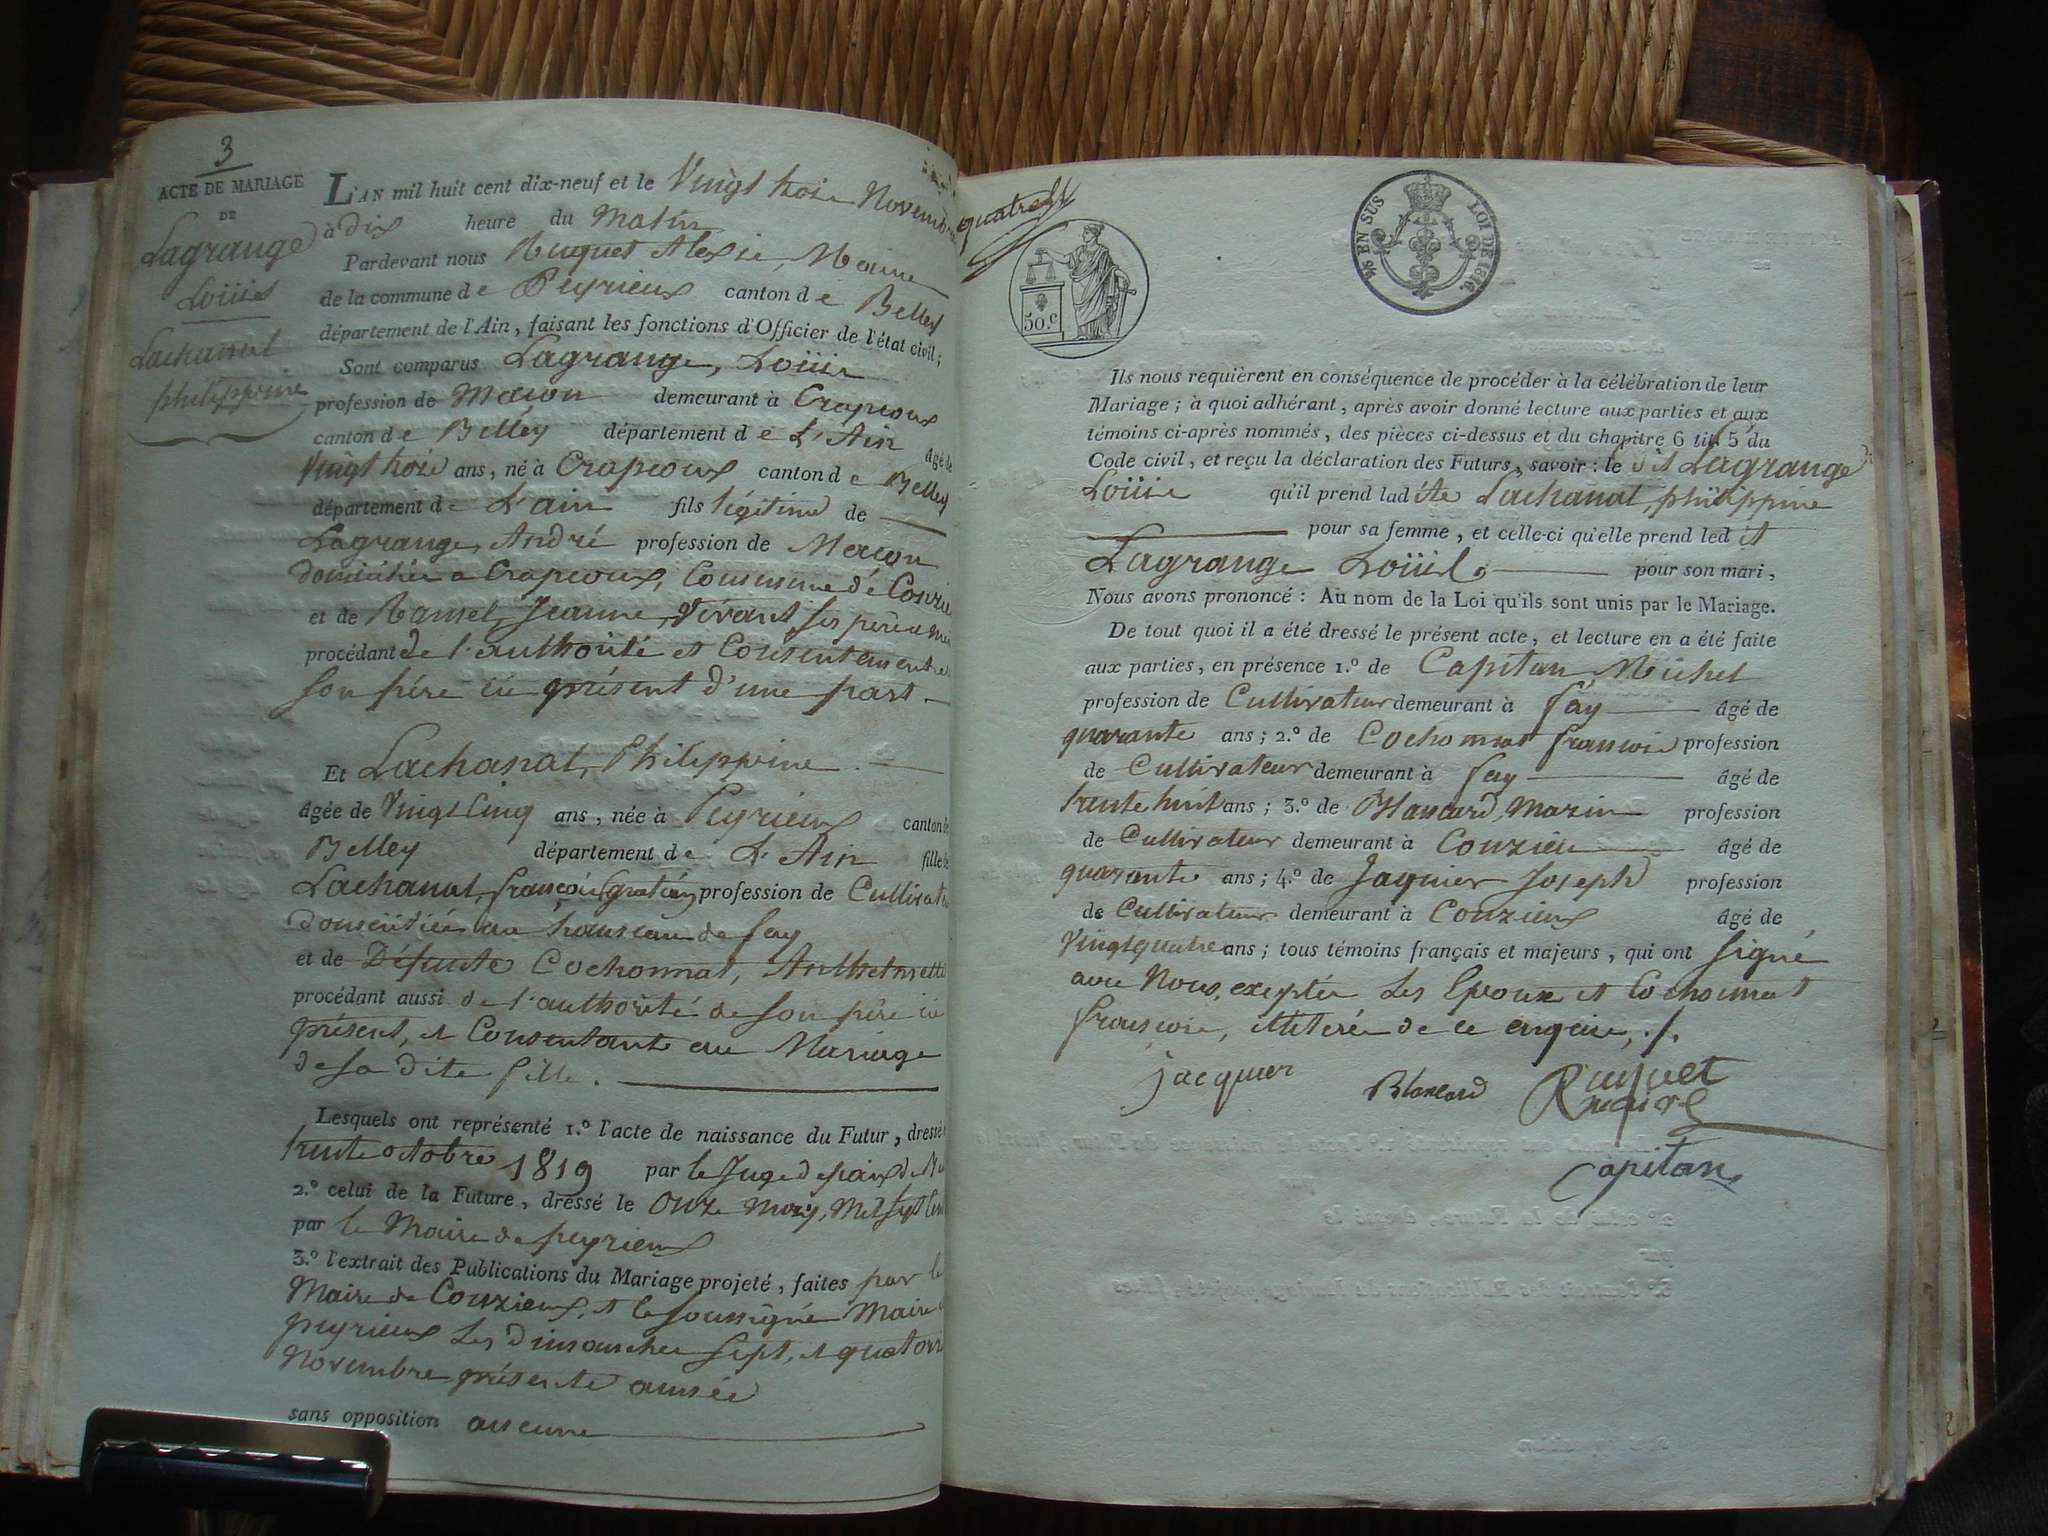 3
ACTE DE MARIAGE
DE
Lagrange
Loüis
Lachanal
philippine
L'AN mil huit cent dix-neuf et le Vingt trois Novembre
à dix heure du Matin
Pardevant nous Ruquet Alexis, Maire
de la commune de Peyrieux canton de Belley
département de l'Ain, faisant les fonctions d'Officier de l'état civil;
Sont comparus Lagrange, Loüis
profession de Macon demeurant à Crapeoux
canton de Belley département de L'Ain âgé de
Vingt trois ans, né à Crapeoux canton de Belley
département de L'ain fils légitime de
Lagrange, André profession de Macon
domicilié a Crapeoux, Commune de Conzieu
et de Ramel, Jeanne, vivant ses père et mère
procédant de l'authorité et Consentement de
son père ici présent d'une part
Et Lachanal, Philippine
âgée de Vingt Cinq ans, née à Peyrieux canton de
Belley département de L'Ain fille de
Lachanal, françois profession de Cultivateur
domicilié au hameau de fay
et de Défunte Cochonnat, Anthelmette
procédant aussi de l'authorité de son père ici
présent, et Consentante au Mariage
de sa dite fille.
Lesquels ont représenté 1.º l'acte de naissance du Futur, dressé
trente octobre 1819 par le Juge de paix de
2.º celui de la Future, dressé le onze mars, Mil Sept Cent
par le Maire de peyrieux
3.º l'extrait des Publications du Mariage projeté, faites par le
Maire de Conzieux, et le soussigné Maire de
peyrieux Les dimanches sept, et quatorze
Novembre présente année
sans opposition aucune
quatre
50.c
⅙ EN SUS LOI DE 1816.
Ils nous requièrent en conséquence de procéder à la célébration de leur
Mariage; à quoi adhérant, après avoir donné lecture aux parties et aux
témoins ci-après nommés, des pièces ci-dessus et du chapitre 6 tit 5 du
Code civil, et reçu la déclaration des Futurs, savoir: le dit Lagrange
Loüis qu'il prend ladite Lachanal, philippine
pour sa femme, et celle-ci qu'elle prend ledit
Lagrange Loüis, pour son mari,
Nous avons prononcé: Au nom de la Loi qu'ils sont unis par le Mariage.
De tout quoi il a été dressé le présent acte, et lecture en a été faite
aux parties, en présence 1.º de Capitan Michel
profession de Cultivateur demeurant à fay âgé de
quarante ans; 2.º de Cochonnat françois profession
de Cultivateur demeurant à fay âgé de
trente huit ans; 3.º de Blancard, Marin profession
de Cultivateur demeurant à Conzieu âgé de
quarante ans; 4.º de Jaquier Joseph profession
de Cultivateur demeurant à Conzieux âgé de
vingt quatre ans; tous témoins français et majeurs, qui ont signé
avec Nous, exeptée Les Epoux et Cochonnat
françois, illiterée de ce enquis, ./.
jacquier Blancard Ruquet
maire
Capitan